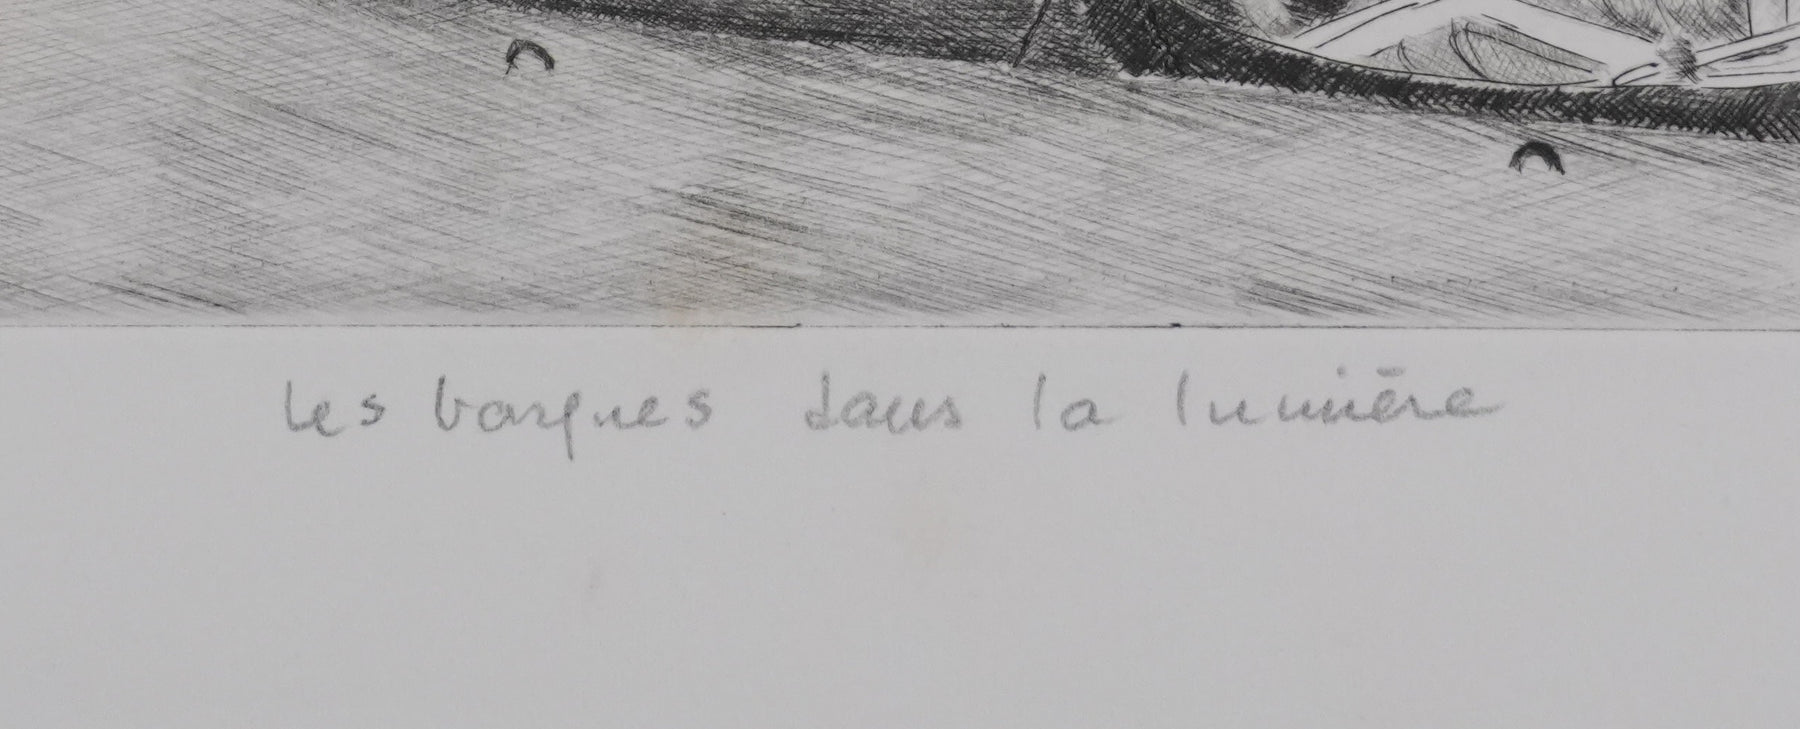 les barques dans la lumière